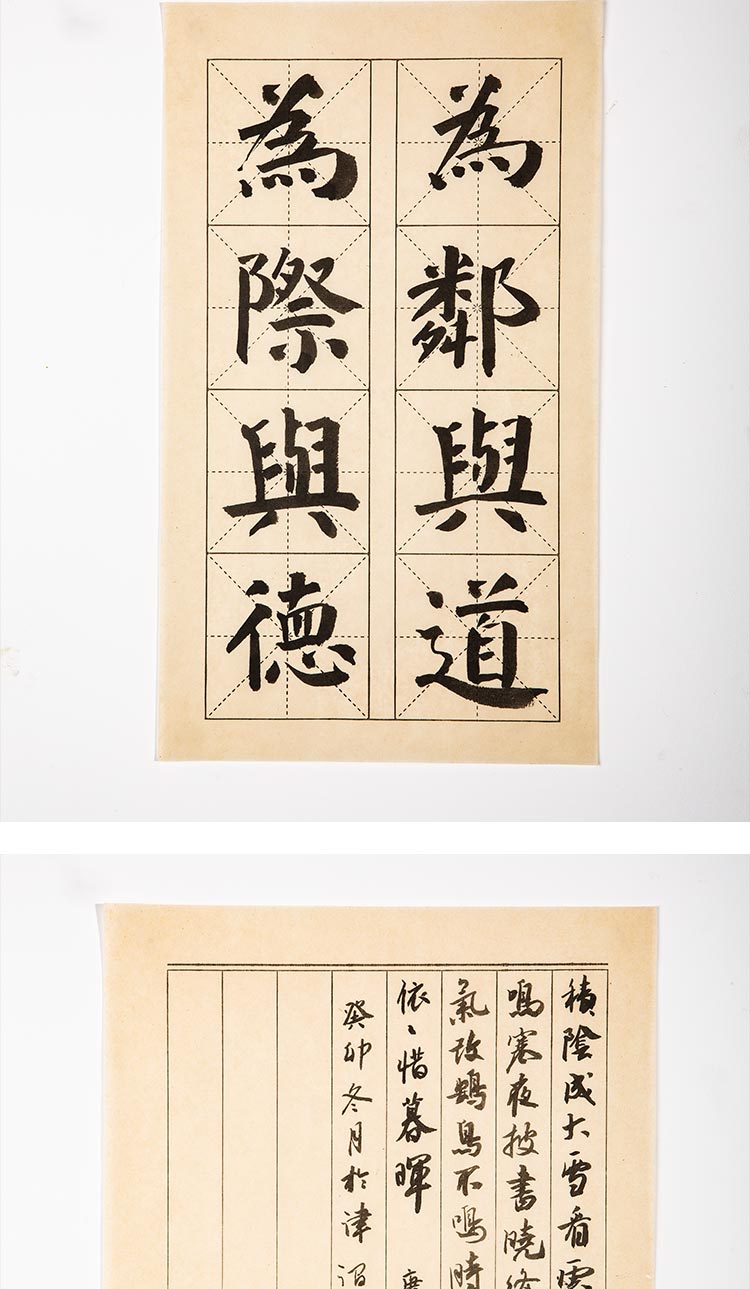 為鄰與道
為際與德
積陰成大雪看處
鳴寒夜披書曉
氣改鷃鳥不鳴時
依〻惜暮暉
癸卯冬月於津